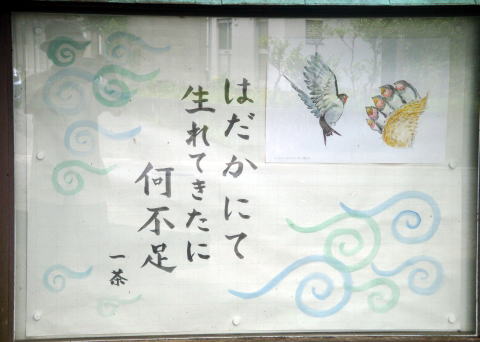 はだかにて
生れてきたに
何不足
一茶